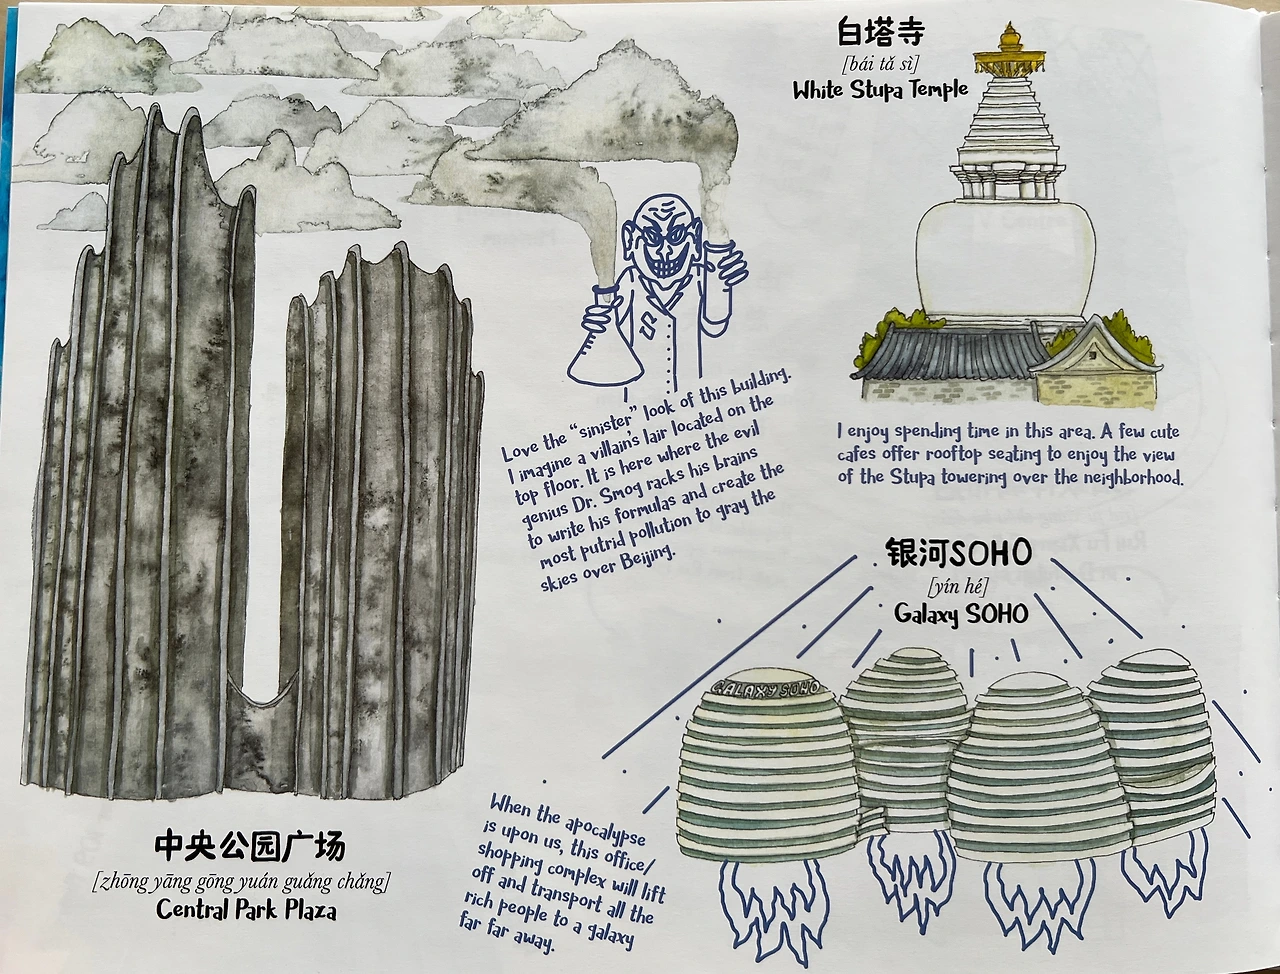 中央公园广场
[zhōng yāng gōng yuán guǎng chǎng]
Central Park Plaza
Love the "sinister" look of this building.
I imagine a villain's lair located on the
top floor. It is here where the evil
genius Dr. Smog racks his brains
to write his formulas and create the
most putrid pollution to gray the
skies over Beijing.
S
白塔寺
[bái tǎ sì]
White Stupa Temple
I enjoy spending time in this area. A few cute
cafes offer rooftop seating to enjoy the view
of the Stupa towering over the neighborhood.
银河SOHO
[yín hé]
Galaxy SOHO
GALAXY SOHO
When the apocalypse
is upon us, this office/
shopping complex will lift
off and transport all the
rich people to a galaxy
far far away.